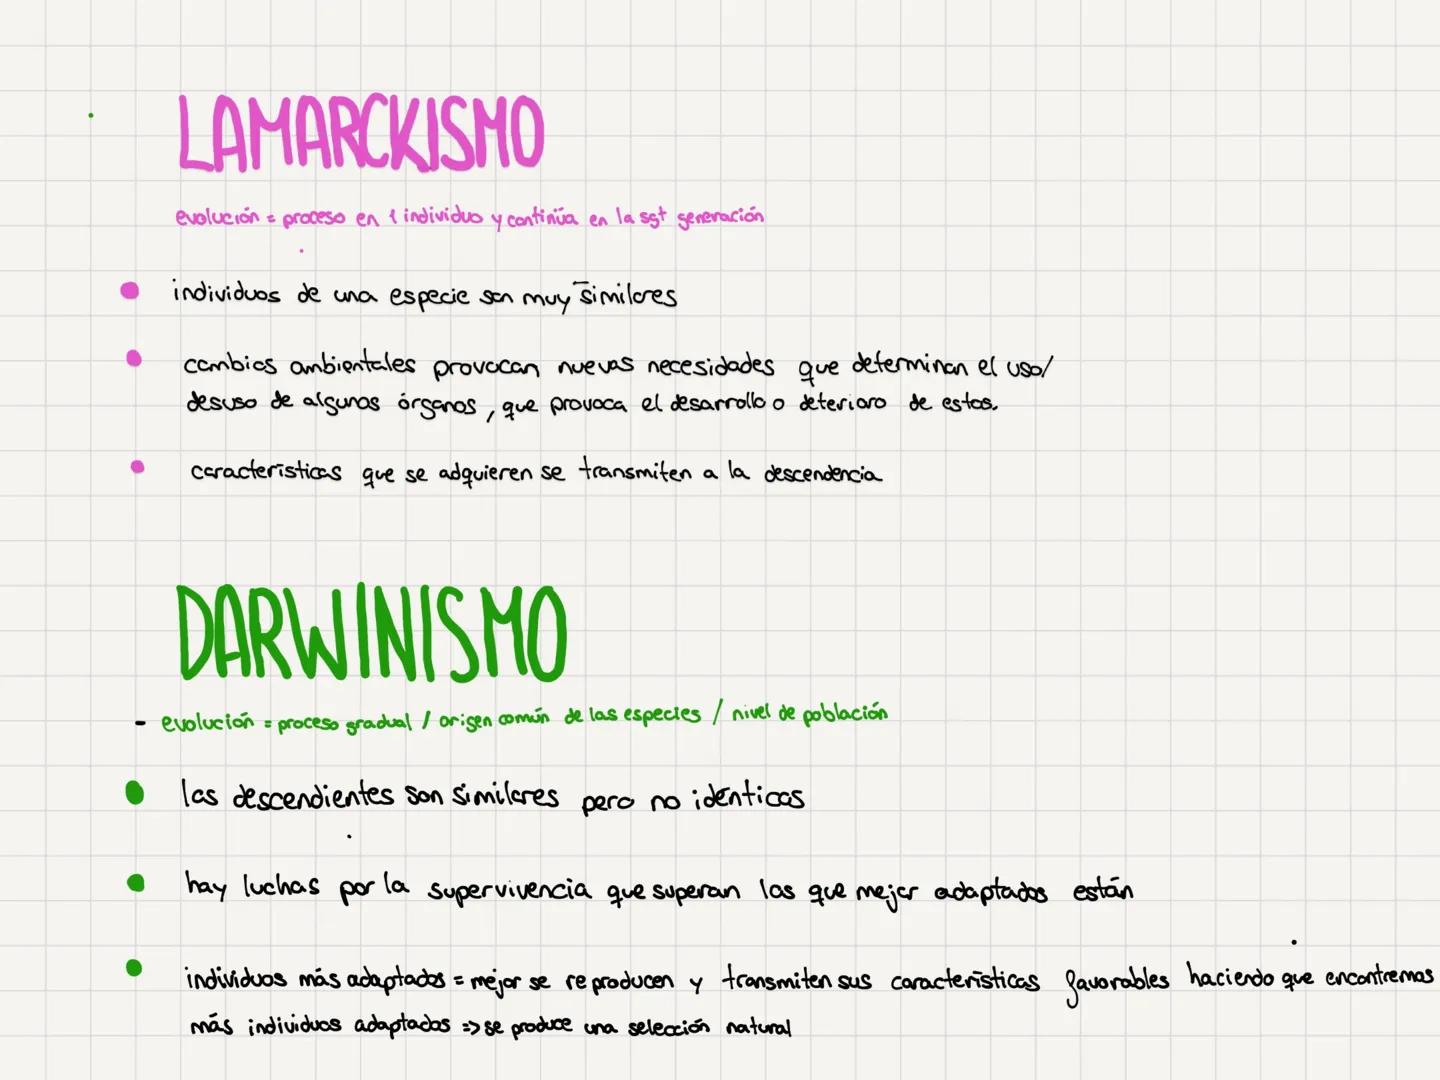 LAMARCKISMO
evolución = proceso en 1 individuo y continúa en la sgt generación
individuos de una especie son muy similares
cambios ambientales provocan nuevas necesidades que determinan el uso/
desuso de algunos órganos, que provoca el desarrollo o deterioro de estos.
características que se adquieren se transmiten a la descendencia
DARWINISMO
- evolución = proceso gradual / origen común de las especies / nivel de población
los descendientes son similares pero no idénticos
hay luchas por la supervivencia que superan los que mejor adaptados están
individuos más adaptados = mejor se reproducen y transmiten sus características favorables haciendo que encontremos
más individuos adaptados => se produce una selección natural